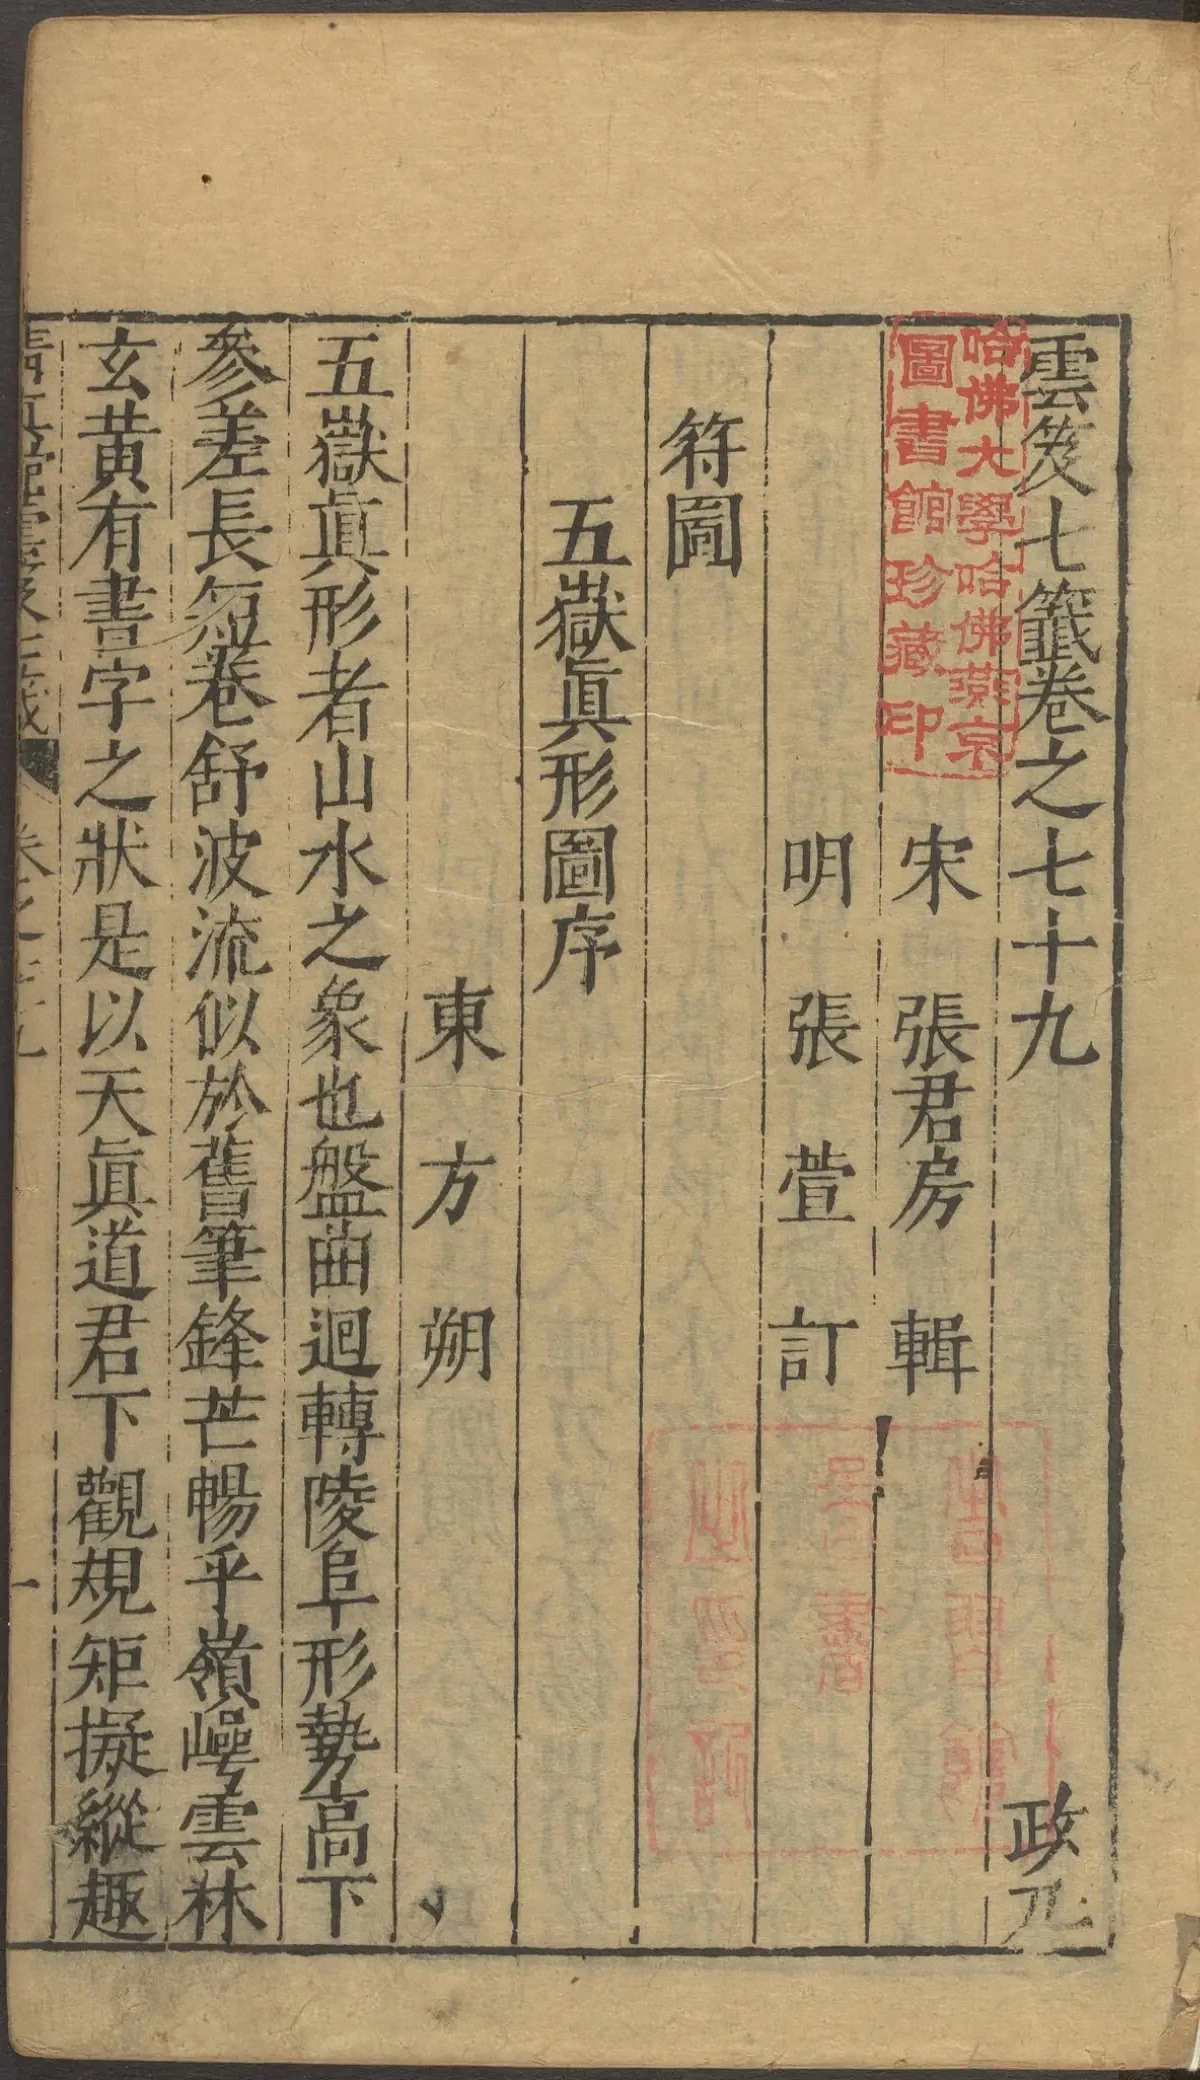 雲笈七籤卷之七十九 政九
宋 張君房 輯
明 張萱 訂
符圖
五嶽眞形圖序
東方朔
五嶽眞形者山水之象也盤曲迴轉陵阜形勢高下
參差長短卷舒波流似於舊筆鋒芒暢乎嶺崿雲林
玄黃有書字之狀是以天眞道君下觀規矩擬縱趣
一
哈佛大學哈佛燕京
圖書館珍藏印